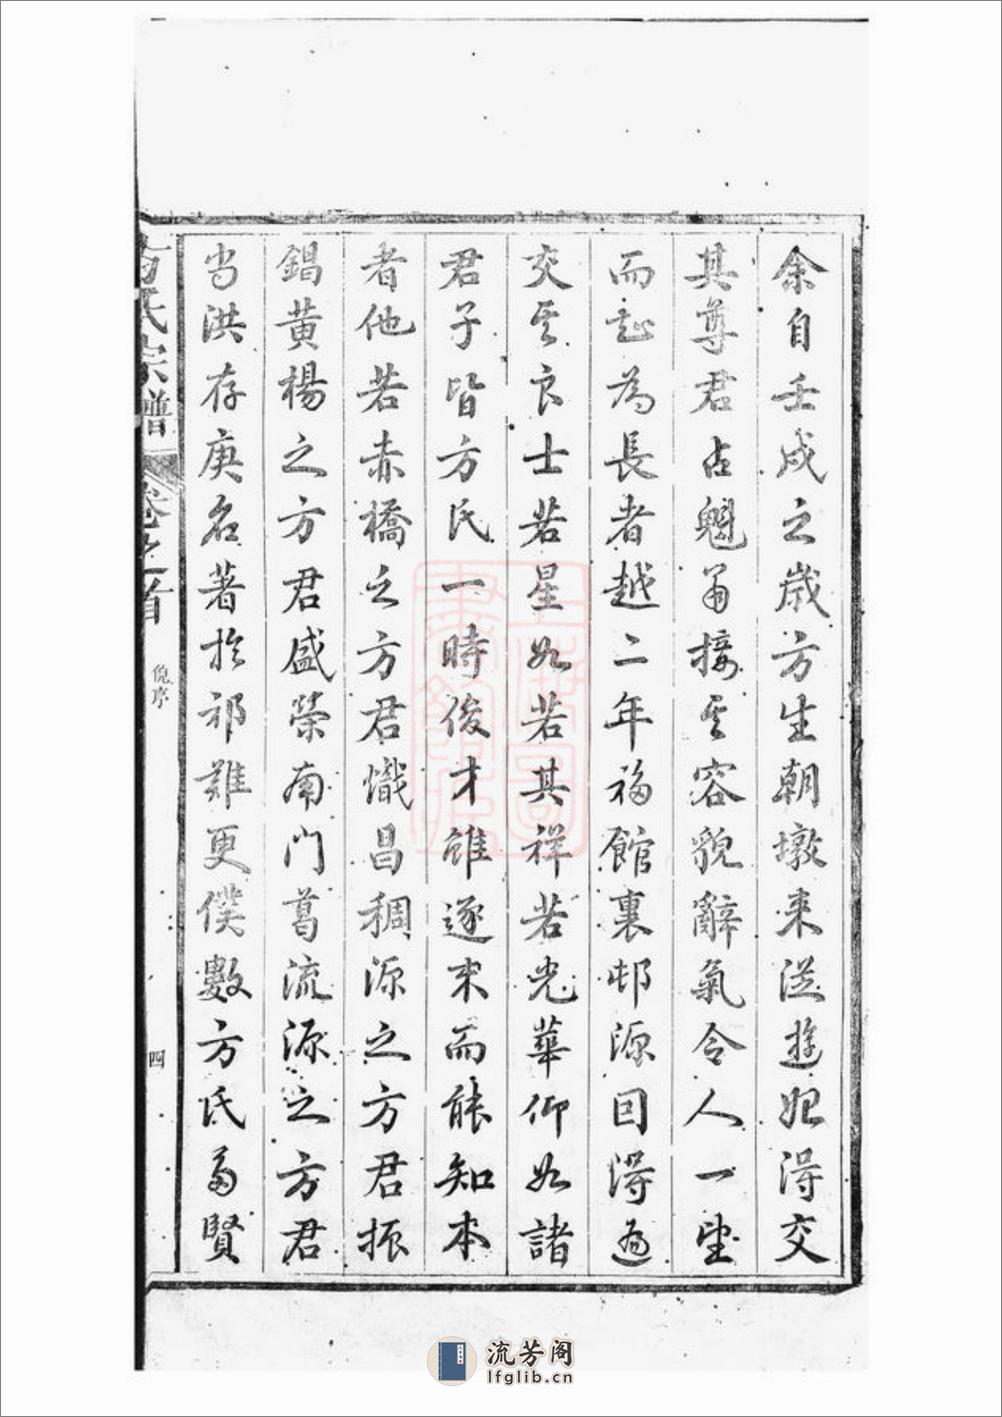 余自壬戌之歲方生朝墩来從遊始得交
其尊君占魁翁接其容貌辭氣令人一望
而知為長者越二年移館裏邨源因得遍
交其良士若星如若其祥若光華仰如諸
君子皆方氏一時俊才雖逐末而能知本
者他若赤橋之方君熾昌稠源之方君振
錩黄楊之方君盛榮南門葛流源之方君
尚洪存庚名著於祁難更僕數方氏多賢
方氏宗譜
卷之首
倪序
四
流芳阁
lfglib.cn